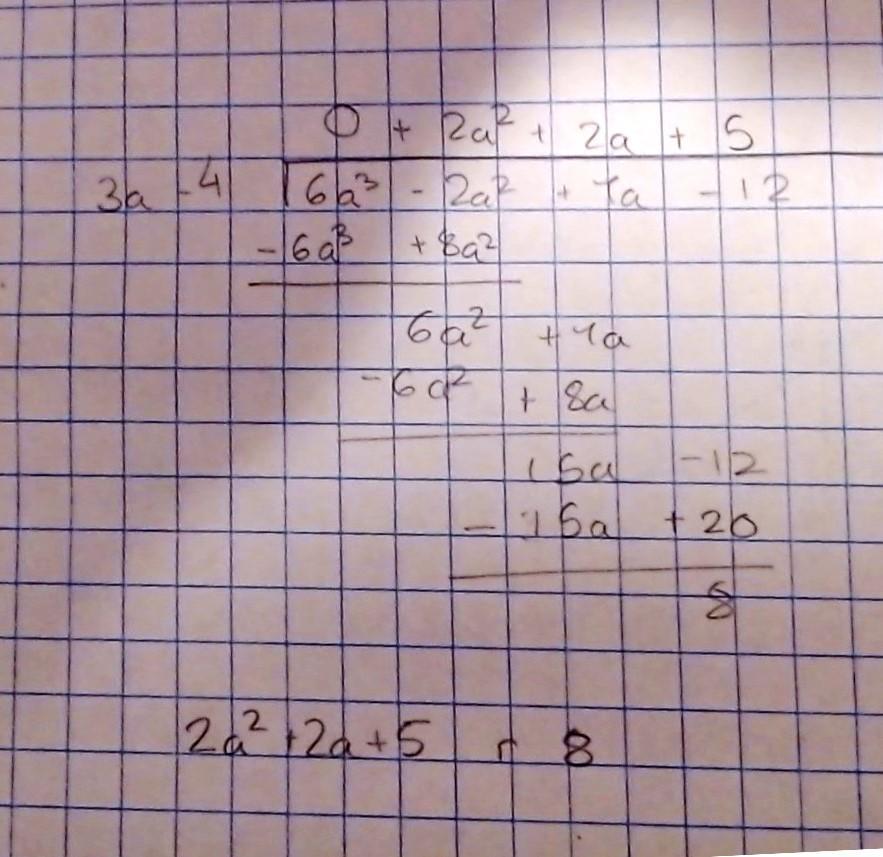 0 + 2a² + 2a + 5
3a - 4 6a³ - 2a² + 7a - 12
- 6a³ + 8a²
6a² + 7a
- 6a² + 8a
15a - 12
- 15a + 20
8
2a² + 2a + 5 r 8